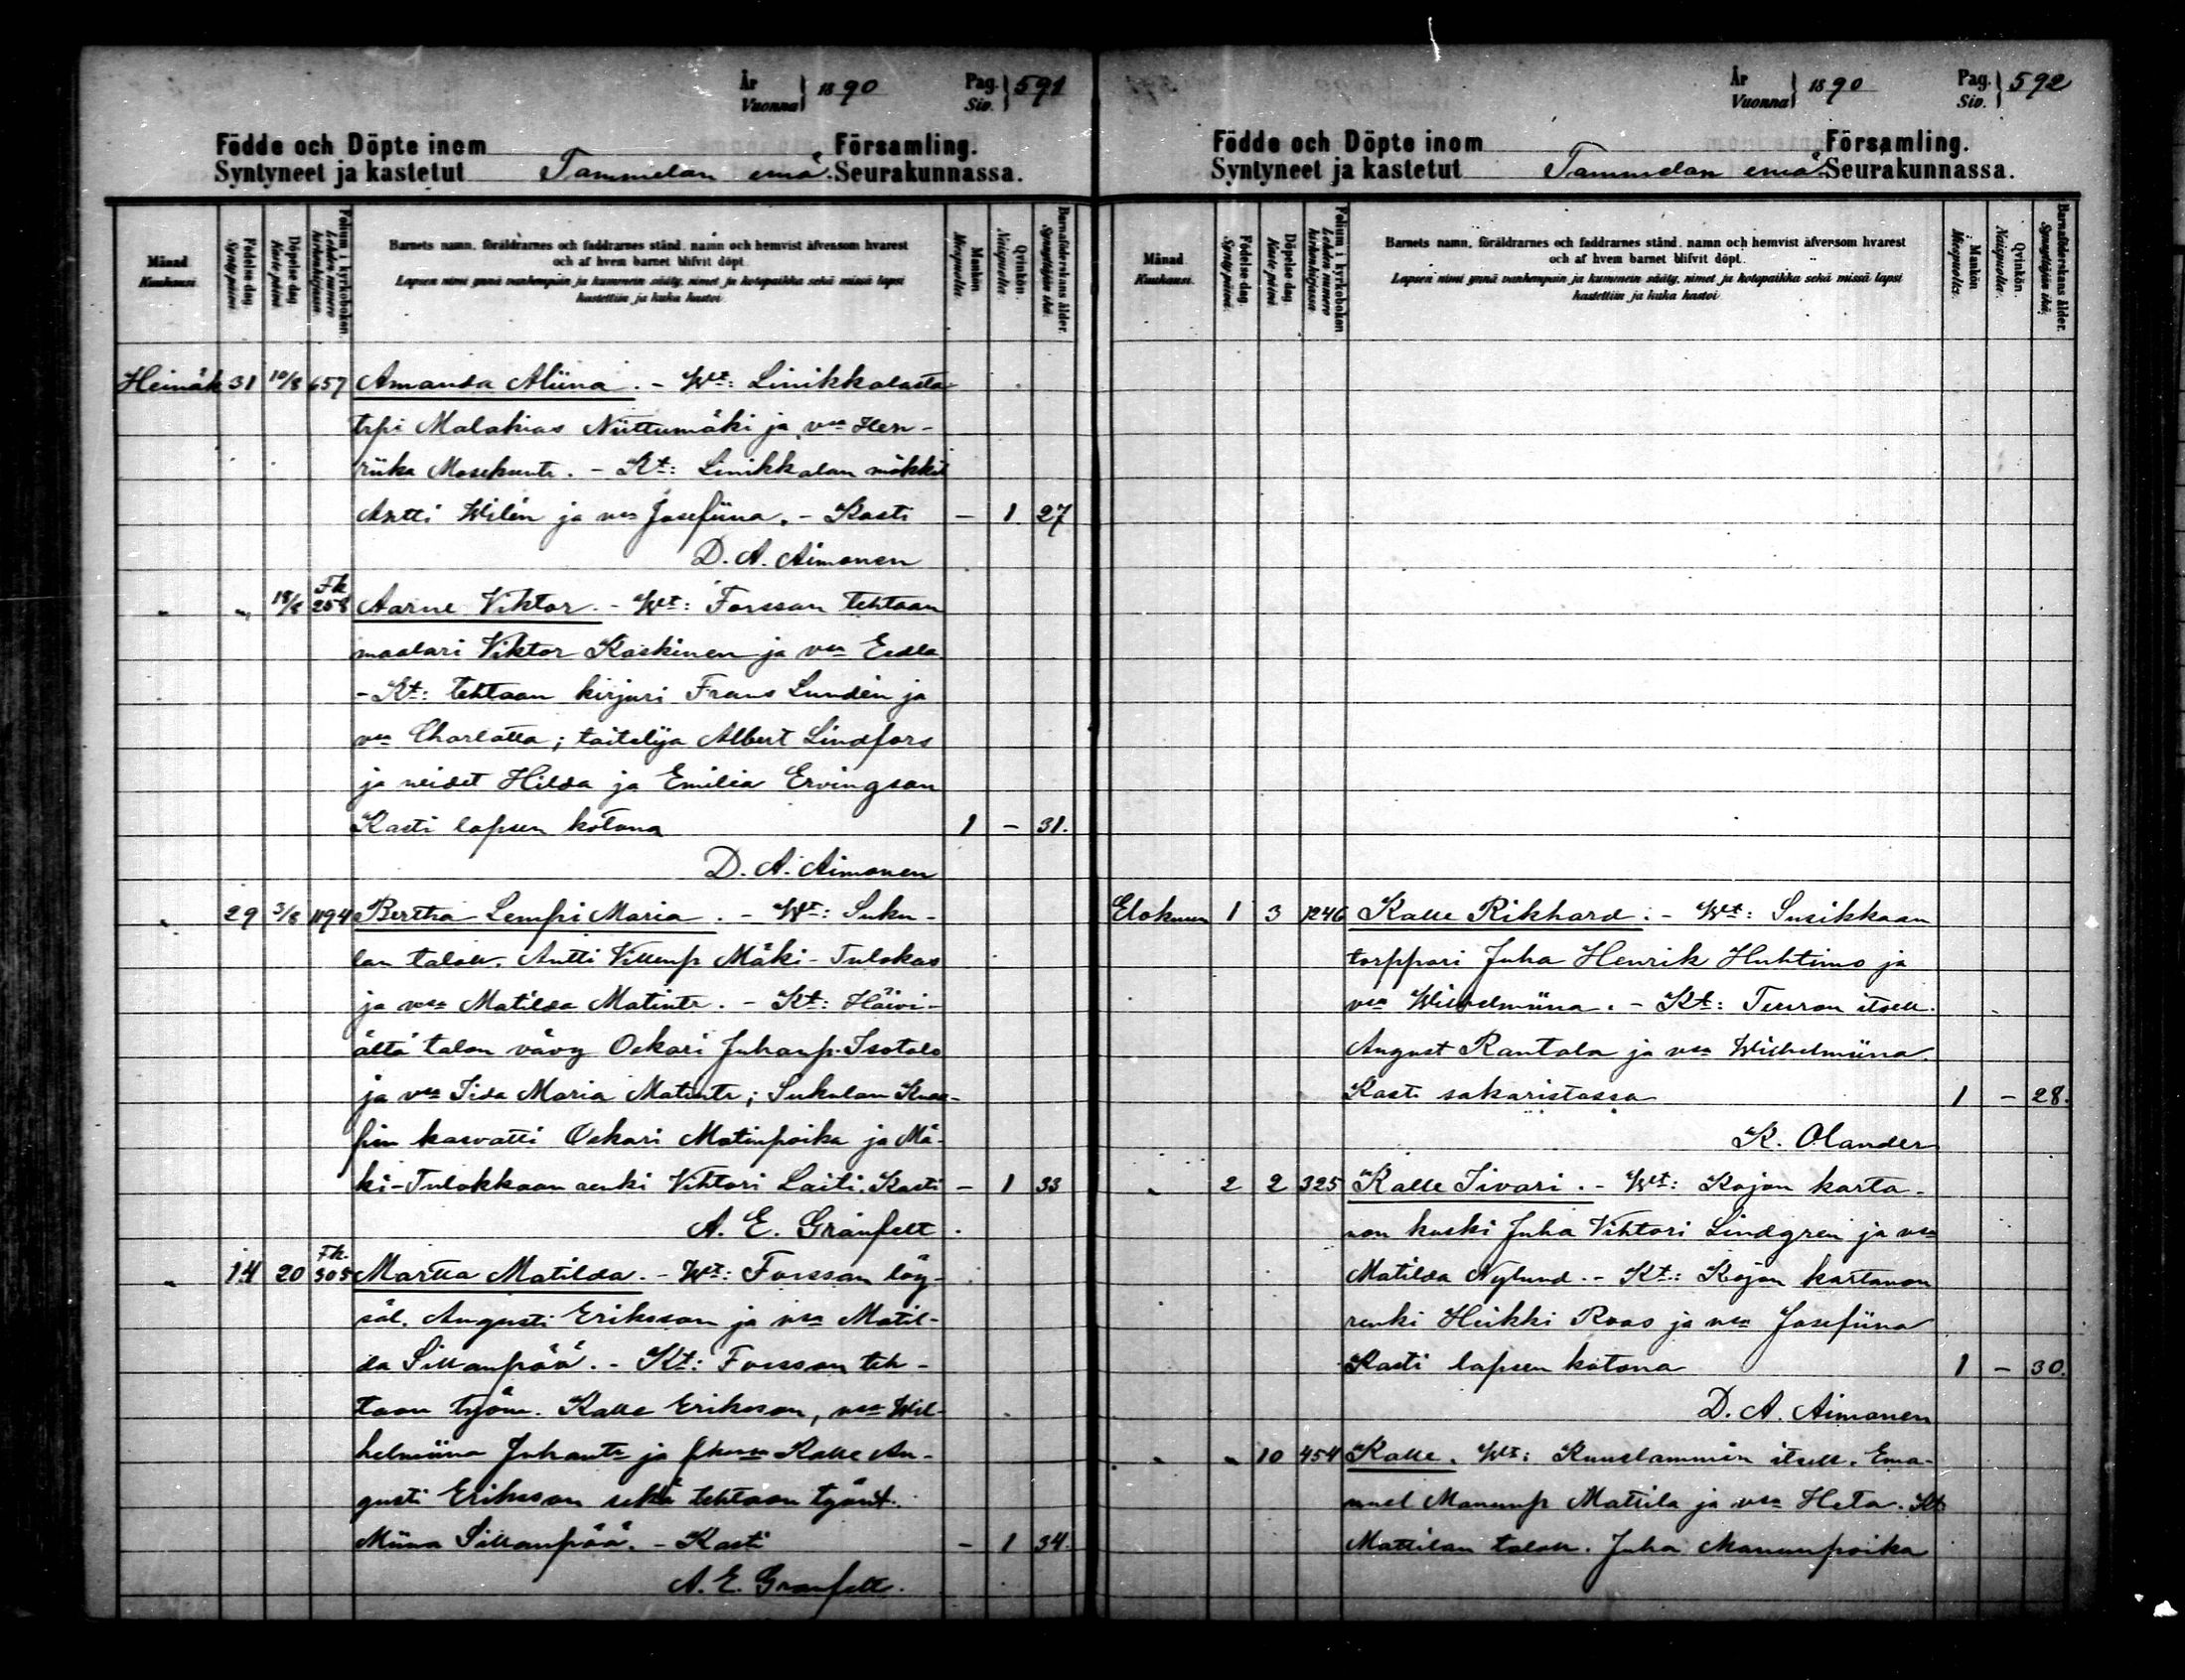 År
Vuonna } 1890 Pag.
Siv. } 591
Födde och Döpte inom Församling.
Syntyneet ja kastetut Tammelan emä Seurakunnassa.
Månad
Kuukausi.
Födelse dag.
Syntypäivä.
Döpelse dag.
Kaste päivä
Folium i kyrkoboken
Lehden numero
kirkonkirjassa.
Barnets namn, föräldrarnes och faddrarnes stånd, namn och hemvist äfvensom hvarest
och af hvem barnet blifvit döpt.
Lapsen nimi ynnä vanhempain ja kummein sääty, nimet ja kotopaikka sekä missä lapsi
kastettiin ja kuka kastoi.
Mankön
Miespuolta.
Qvinkön.
Naispuolta.
Barnaföderskans ålder.
Synnyttäjän ikä.
Heinäk 31 10/8 657 Amanda Aliina. - Wt: Linikkalasta
trpi Malakias Niittumäki ja vsa Hen-
riika Mosekuntr. - Kt: Linikkalan mökkil
Antti Wilén ja vsa Josefiina. - Kasti - 1 27
D. A. Aimonen
" " 18/8 Fk 258 Aarne Viktor. - Wt: Forssan tehtaan
maalari Viktor Kaskinen ja vsa Eedla
- Kt: tehtaan kirjuri Frans Lundén ja
vsa Charlotta; taitelija Albert Lindfors
ja neidet Hilda ja Emilia Ervingson
Kasti lapsen kotona 1 - 31.
D. A. Aimonen
" 29 3/8 1194 Bertha Lempi Maria. - Wt: Suku-
lan taloll. Antti Villemp Mäki-Tulokas
ja vsa Matilda Matintr. - Kt: Häivi-
ältä talon vävy Oskari Juhanp. Isotalo
ja vsa Iida Maria Matintr; Sukulan
kasvatti Oskari Matinpoika ja Mä-
ki-Tulokkaan renki Vihtori Laiti. Kasti - 1 33
A. E. Granfelt
" 14 20 Fk. 305 Martta Matilda. - Wt: Forssan löy-
säl. Augusti Eriksson ja vsa Matil-
da Sillanpää. - Kt: Forssan teh-
taan työm. Kalle Eriksson, vsa Wil-
helmiina Juhantr ja Kalle Au-
gusti Eriksson sekä tehtaan työnt.
Miina Sillanpää. - Kasti - 1 34.
A. E. Granfelt.
År
Vuonna } 1890 Pag.
Siv. } 592
Födde och Döpte inom Församling.
Syntyneet ja kastetut Tammelan emä Seurakunnassa.
Månad
Kuukausi.
Födelse dag.
Syntypäivä.
Döpelse dag.
Kaste päivä
Folium i kyrkoboken
Lehden numero
kirkonkirjassa.
Barnets namn, föräldrarnes och faddrarnes stånd, namn och hemvist äfvensom hvarest
och af hvem barnet blifvit döpt.
Lapsen nimi ynnä vanhempain ja kummein sääty, nimet ja kotopaikka sekä missä lapsi
kastettiin ja kuka kastoi.
Mankön
Miespuolta.
Qvinkön.
Naispuolta.
Barnaföderskans ålder.
Synnyttäjän ikä.
Elokuun 1 3 1246 Kalle Rikhard. - Wt: Susikkaan
torppari Juha Henrik Huhtimo ja
vsa Wilhelmiina. - Kt: Teuron itsell.
August Rantala ja vsa Wilhelmiina.
Kasti sakaristossa 1 - 28.
K. Olander
" 2 2 325 Kalle Iivari. - Wt: Kojon karta-
non kuski Juha Vihtori Lindgren ja vsa
Matilda Nylund. - Kt: Kojon kartanon
renki Heikki Roos ja vsa Josefiina
Kasti lapsen kotona 1 - 30.
D. A. Aimonen
" " 10 454 Kalle. Wt: Kuuslammin itsell. Ema-
nuel Manunp Mattila ja vsa Heta. Kt:
Mattilan taloll. Juha Manunpoika